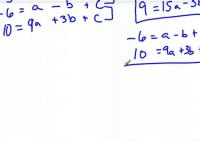 -6 = a - b + c]
10 = 9a + 3b + c]
9 = 15a - 3
-6 = a - b +
10 = 9a + 3b